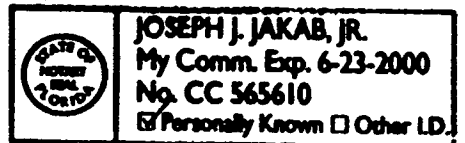 STATE OF
NOTARY
SEAL
FLORIDA
JOSEPH J. JAKAB, JR.
My Comm. Exp. 6-23-2000
No. CC 565610
☑ Personally Known ☐ Other I.D.